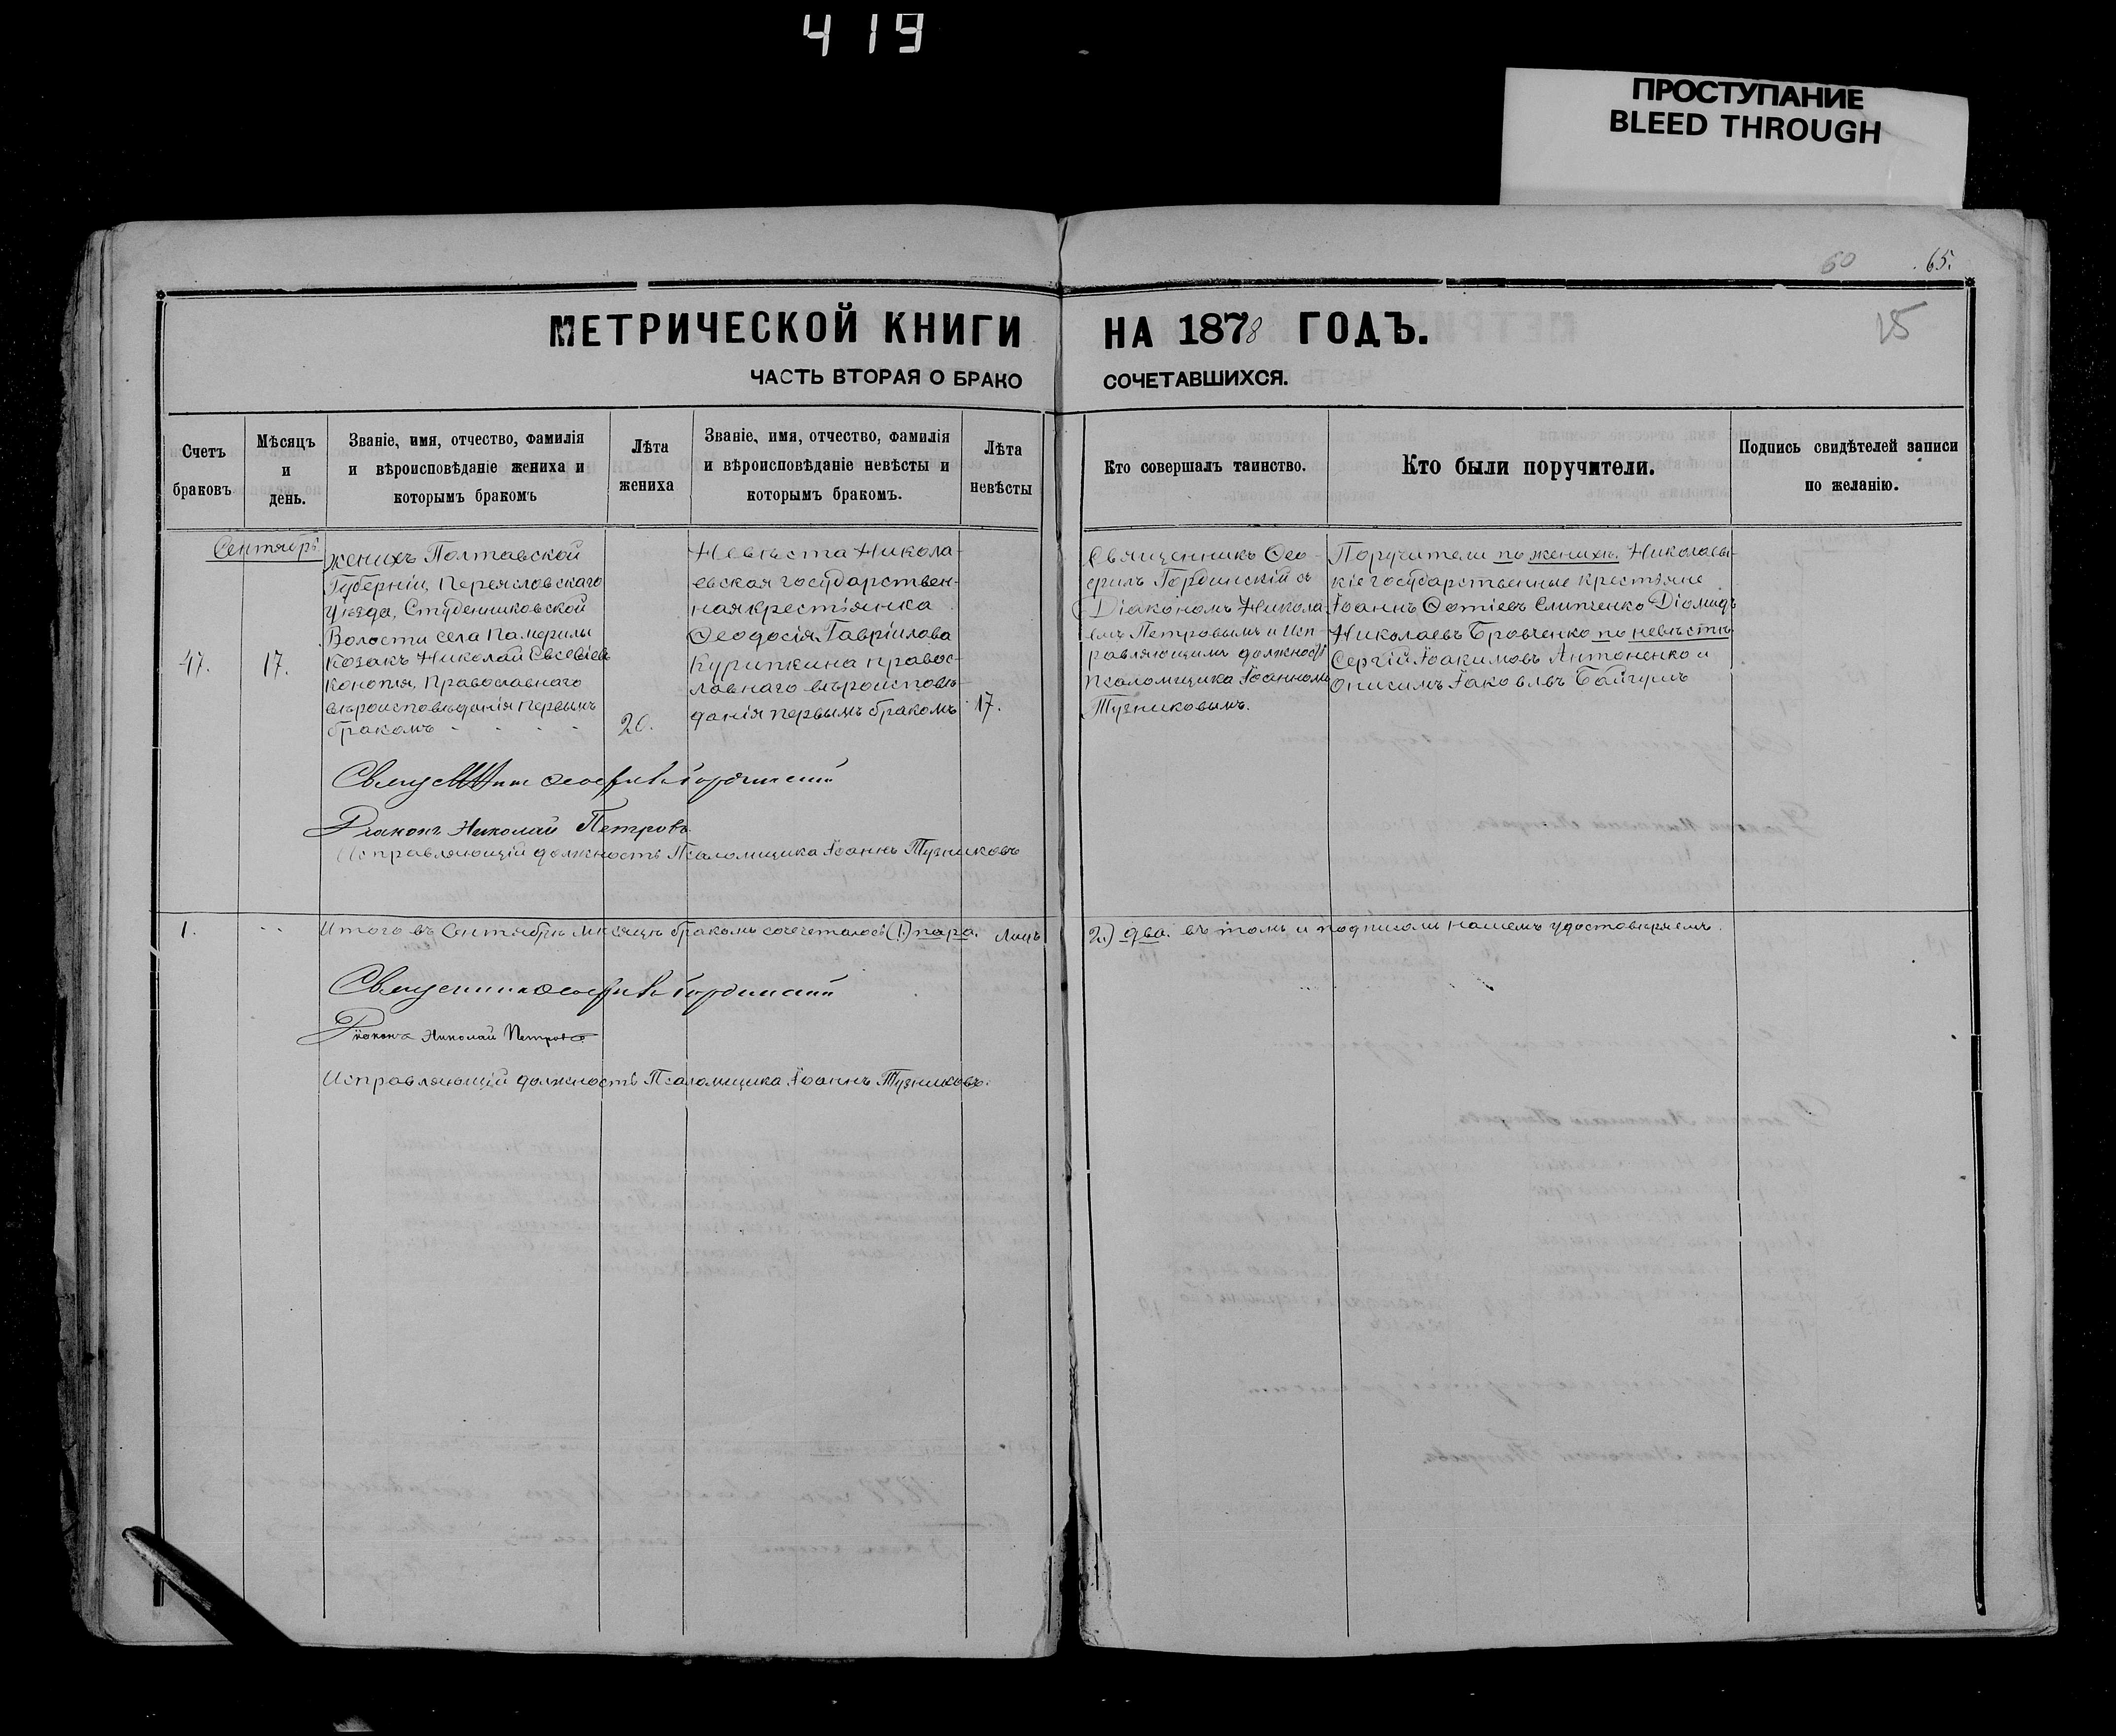 419
ПРОСТУПАНИЕ
BLEED THROUGH
60
65.
МЕТРИЧЕСКОЙ КНИГИ НА 1878 ГОДЪ.
25
ЧАСТЬ ВТОРАЯ О БРАКОСОЧЕТАВШИХСЯ.
Счетъ
браковъ
Мѣсяцъ
и
день.
Званіе, имя, отчество, фамилія
и вѣроисповѣданіе жениха и
которымъ бракомъ
Лѣта
жениха
Званіе, имя, отчество, фамилія
и вѣроисповѣданіе невѣсты и
которымъ бракомъ.
Лѣта
невѣсты
Кто совершалъ таинство.
Кто были поручители.
Подпись свидѣтелей записи
по желанію.
Сентябрь
47.
17.
Женихъ Полтавской
Губерніи, Переясловскаго
Уѣзда, Студениковской
Волости села
козакъ Николай Евсевіевъ
Конопля, Православнаго
вѣроисповѣданія первымъ
бракомъ - - - -
20.
Невѣста Никола-
евская государствен-
ная крестьянка
Ѳеодосія Гавріилова
Курипкина правос-
лавнаго вѣроисповѣ-
данія первымъ бракомъ
17.
Священникъ Ѳео-
филъ Гординскій съ
Діакономъ Никола-
емъ Петровымъ и Исп-
равляющимъ должность
Псаломщика Іоанномъ
Тузниковымъ.
Поручители по женихѣ: Николаевс-
кіе государственные крестьяне
Іоаннъ Фотіевъ Слипченко Діомидъ
Николаевъ Бровченко по невѣстѣ
Сергій Іоакимовъ Антоненко и
Онисимъ Іаковлевъ
Священникъ Ѳеофилъ Гординскій
Діаконъ Николай Петровъ
Исправляющій должность Псаломщика Іоаннъ Тузниковъ
1.
Итого въ Сентябрѣ Мѣсяцѣ бракомъ сочеталось (1) пара. Лицъ 2.) два. въ томъ и подписомъ нашемъ удостовѣряемъ.
Священникъ Ѳеофилъ Гординскій
Діаконъ Николай Петровъ
Исправляющій должность Псаломщика Іоаннъ Тузниковъ.